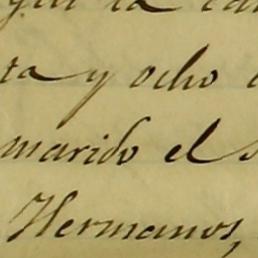 la
ta y ocho
marido el
Hermanos,